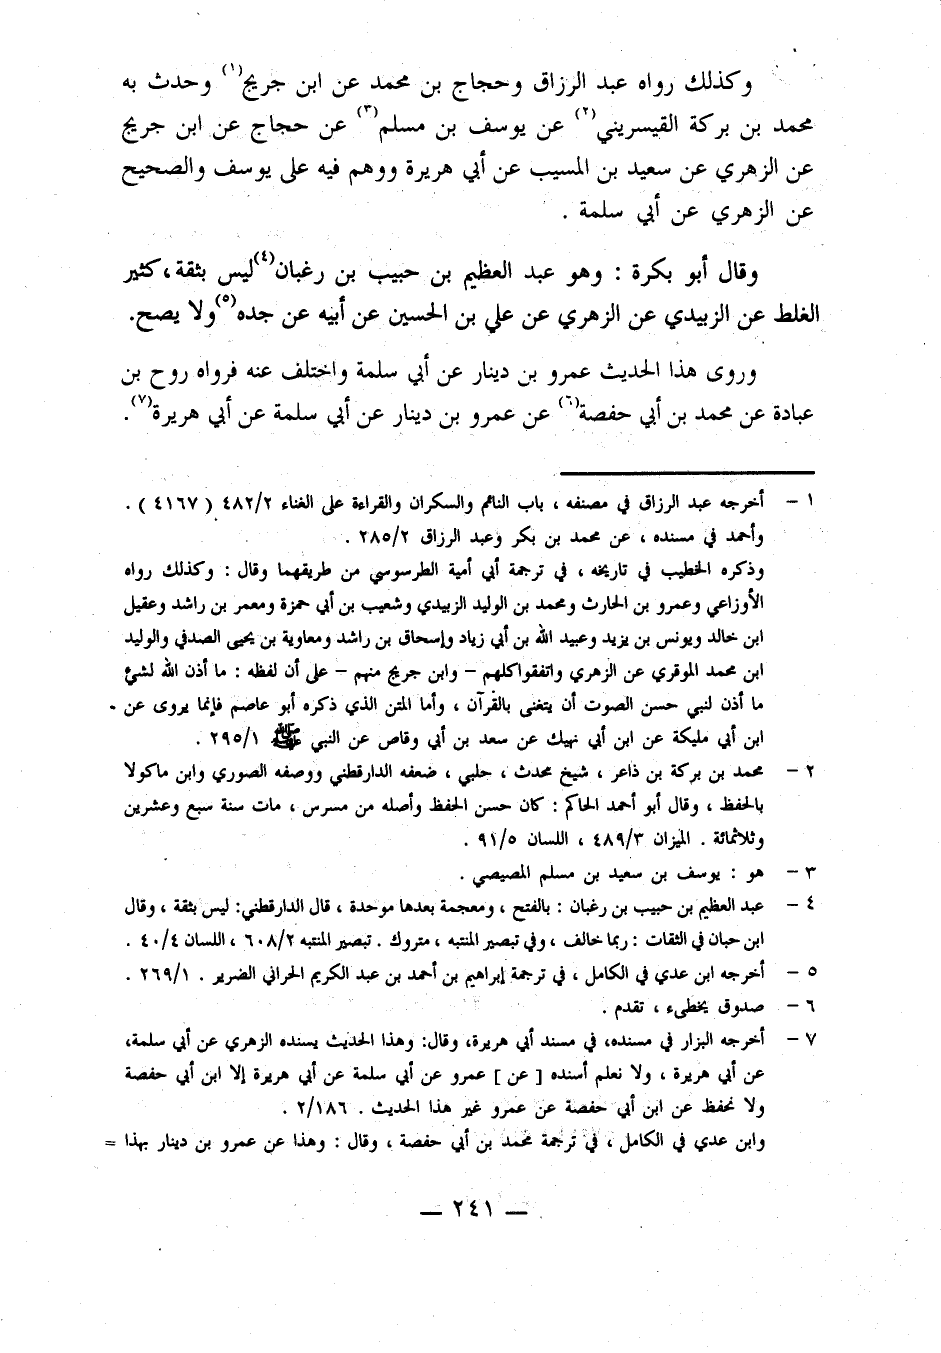 وكذلك رواه عبد الرزاق وحجاج بن محمد عن ابن جريج(١) وحدث به
محمد بن بركة القيسريني(٢) عن يوسف بن مسلم(٣) عن حجاج عن ابن جريج
عن الزهري عن سعيد بن المسيب عن أبي هريرة ووهم فيه على يوسف والصحيح
عن الزهري عن أبي سلمة .
وقال أبو بكرة : وهو عبد العظيم بن حبيب بن رغبان(٤) ليس بثقة، كثير
الغلط عن الزبيدي عن الزهري عن علي بن الحسين عن أبيه عن جده(٥) ولا يصح.
وروى هذا الحديث عمرو بن دينار عن أبي سلمة واختلف عنه فرواه روح بن
عبادة عن محمد بن أبي حفصة(٦) عن عمرو بن دينار عن أبي سلمة عن أبي هريرة(٧).
١ – أخرجه عبد الرزاق في مصنفه ، باب النائم والسكران والقراءة على الغناء ٤٨٢/٢ ( ٤١٦٧ ) .
وأحمد في مسنده ، عن محمد بن بكر وعبد الرزاق ٢٨٥/٢ .
وذكره الخطيب في تاريخه ، في ترجمة أبي أمية الطرسوسي من طريقهما وقال : وكذلك رواه
الأوزاعي وعمرو بن الحارث ومحمد بن الوليد الزبيدي وشعيب بن أبي حمزة ومعمر بن راشد وعقيل
ابن خالد ويونس بن يزيد وعبيد الله بن أبي زياد وإسحاق بن راشد ومعاوية بن يحيى الصدفي والوليد
ابن محمد الموقري عن الزهري واتفقواكلهم – وابن جريج منهم – على أن لفظه : ما أذن الله لشئ
ما أذن لنبي حسن الصوت أن يتغنى بالقرآن ، وأما المتن الذي ذكره أبو عاصم فإنما يروى عن
ابن أبي مليكة عن ابن أبي نهيك عن سعد بن أبي وقاص عن النبي ﷺ ٢٩٥/١ .
٢ – محمد بن بركة بن ذاعر ، شيخ محدث ، حلبي ، ضعفه الدارقطني ووصفه الصوري وابن ماكولا
بالحفظ ، وقال أبو أحمد الحاكم : كان حسن الحفظ وأصله من مسرس ، مات سنة سبع وعشرين
وثلاثمائة . الميزان ٤٨٩/٣ ، اللسان ٩١/٥ .
٣ – هو : يوسف بن سعيد بن مسلم المصيصي .
٤ – عبد العظيم بن حبيب بن رغبان : بالفتح ، ومعجمة بعدها موحدة ، قال الدارقطني: ليس بثقة ، وقال
ابن حبان في الثقات : ربما خالف ، وفي تبصير المنتبه ، متروك . تبصير المنتبه ٦٠٨/٢ ، اللسان ٤٠/٤ .
٥ – أخرجه ابن عدي في الكامل ، في ترجمة إبراهيم بن أحمد بن عبد الكريم الحراني الضرير . ٢٦٩/١ .
٦ – صدوق يخطىء ، تقدم .
٧ – أخرجه البزار في مسنده، في مسند أبي هريرة، وقال: وهذا الحديث يسنده الزهري عن أبي سلمة،
عن أبي هريرة ، ولا نعلم أسنده [ عن ] عمرو عن أبي سلمة عن أبي هريرة إلا ابن أبي حفصة
ولا نحفظ عن ابن أبي حفصة عن عمرو غير هذا الحديث . ٢/١٨٦ .
وابن عدي في الكامل ، في ترجمة محمد بن أبي حفصة ، وقال : وهذا عن عمرو بن دينار بهذا =
— ٢٤١ —